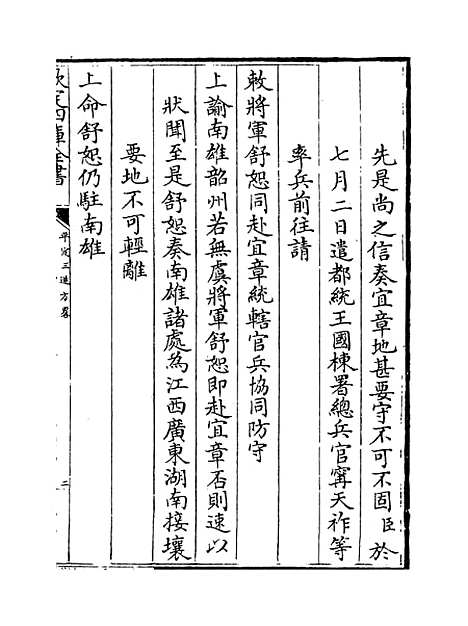 先是尚之信奏宜章地甚要守不可不固臣於
七月二日遣都統王國棟署總兵官甯天祚等
率兵前往請
敕將軍舒恕同赴宜章統轄官兵協同防守
上諭南雄韶州若無虞將軍舒恕即赴宜章否則速以
狀聞至是舒恕奏南雄諸處為江西廣東湖南接壤
要地不可輕離
上命舒恕仍駐南雄
欽定四庫全書
平定三逆方畧
二